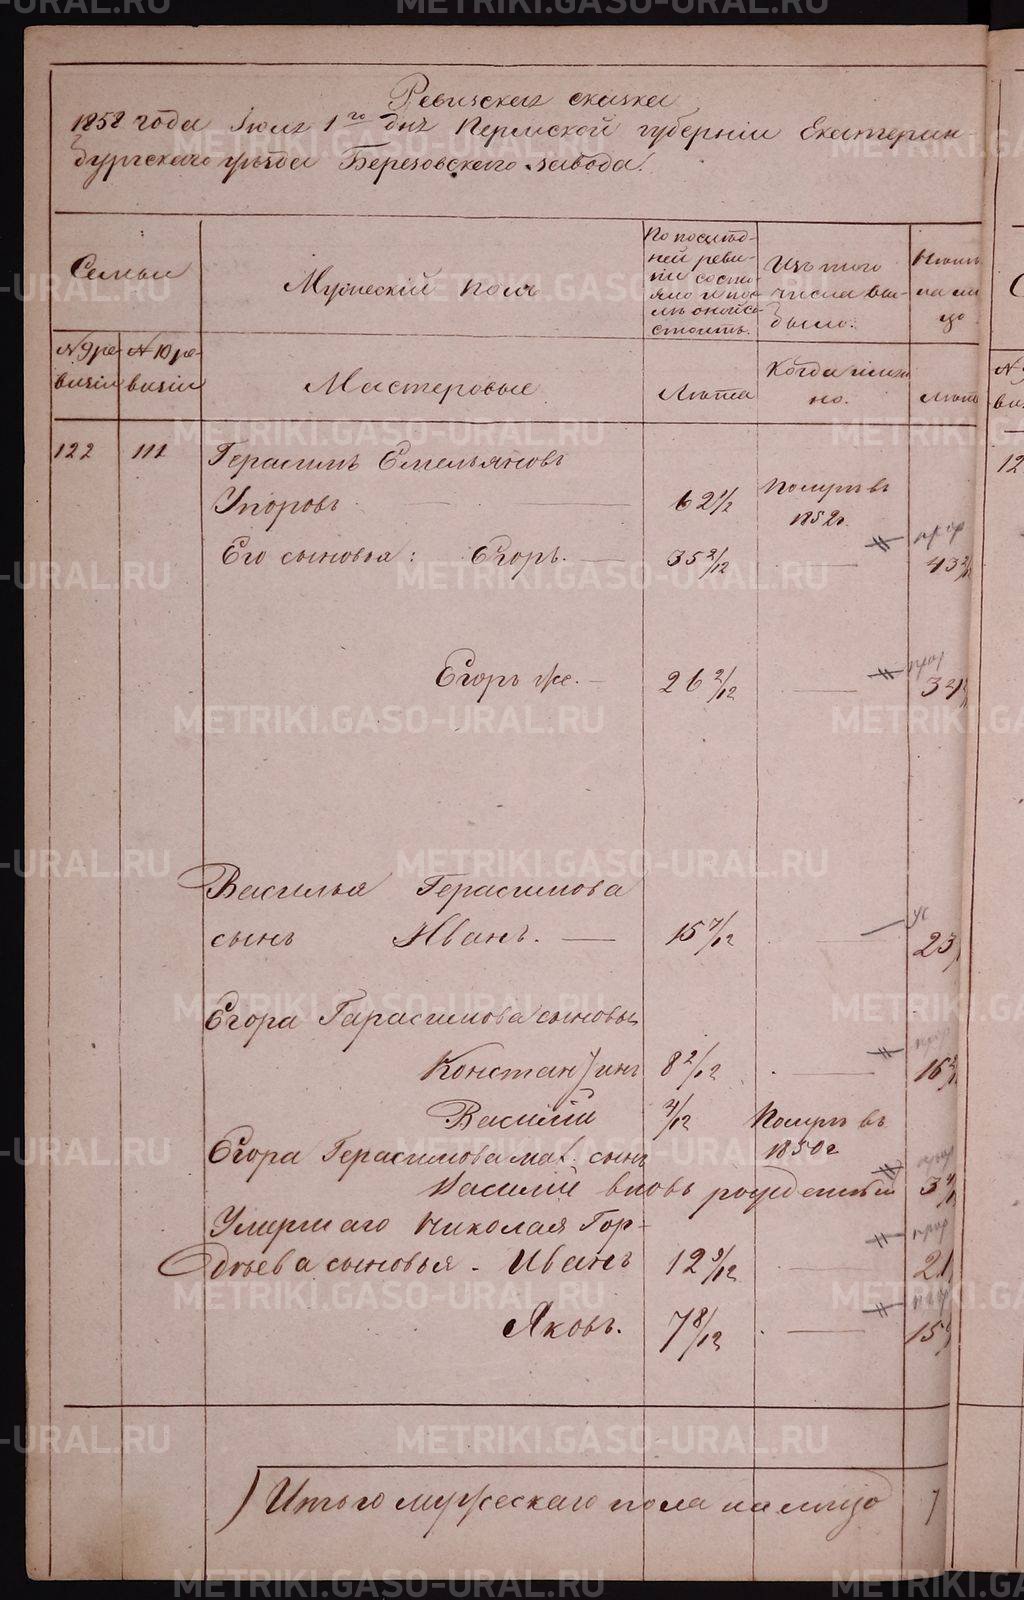 Ревизская сказка
1858 года Іюня 1го дня Пермской губерніи Екатерин
бургскаго уѣзда Березовскаго завода.
Семьи
Мужескій полъ
По послѣд-
ней реви-
зіи состо-
яло и пос-
лѣ оной со-
стоитъ.
Изъ того
числа вы-
было.
Нынѣ
на ли
цо
№ 9 ре-
визіи
№ 10 ре-
визіи
Мастеровые
Лѣта
Когда имян
но.
лѣта
122 111 Герасимъ Емельяновъ
Упоровъ 62 1/2 Померъ въ
1852г.
Его сыновья: Егоръ. 35 2/12 43 2/12
Егоръ же. 26 2/12 34
Василья Герасимова
сынъ Иванъ. 15 7/12 23
Егора Гарасимова сыновья
Константинъ 8 2/12 16
Василій 4/12 Померъ въ
1850г
Егора Герасимова мал. сынъ
Василій вновь рожденный 3
Умершаго Николая Гор-
дѣева сыновья - Иванъ 12 9/12 21
Яковъ. 7 8/12 15
Итого мужескаго пола на лицо 7
METRIKI.GASO-URAL.RU